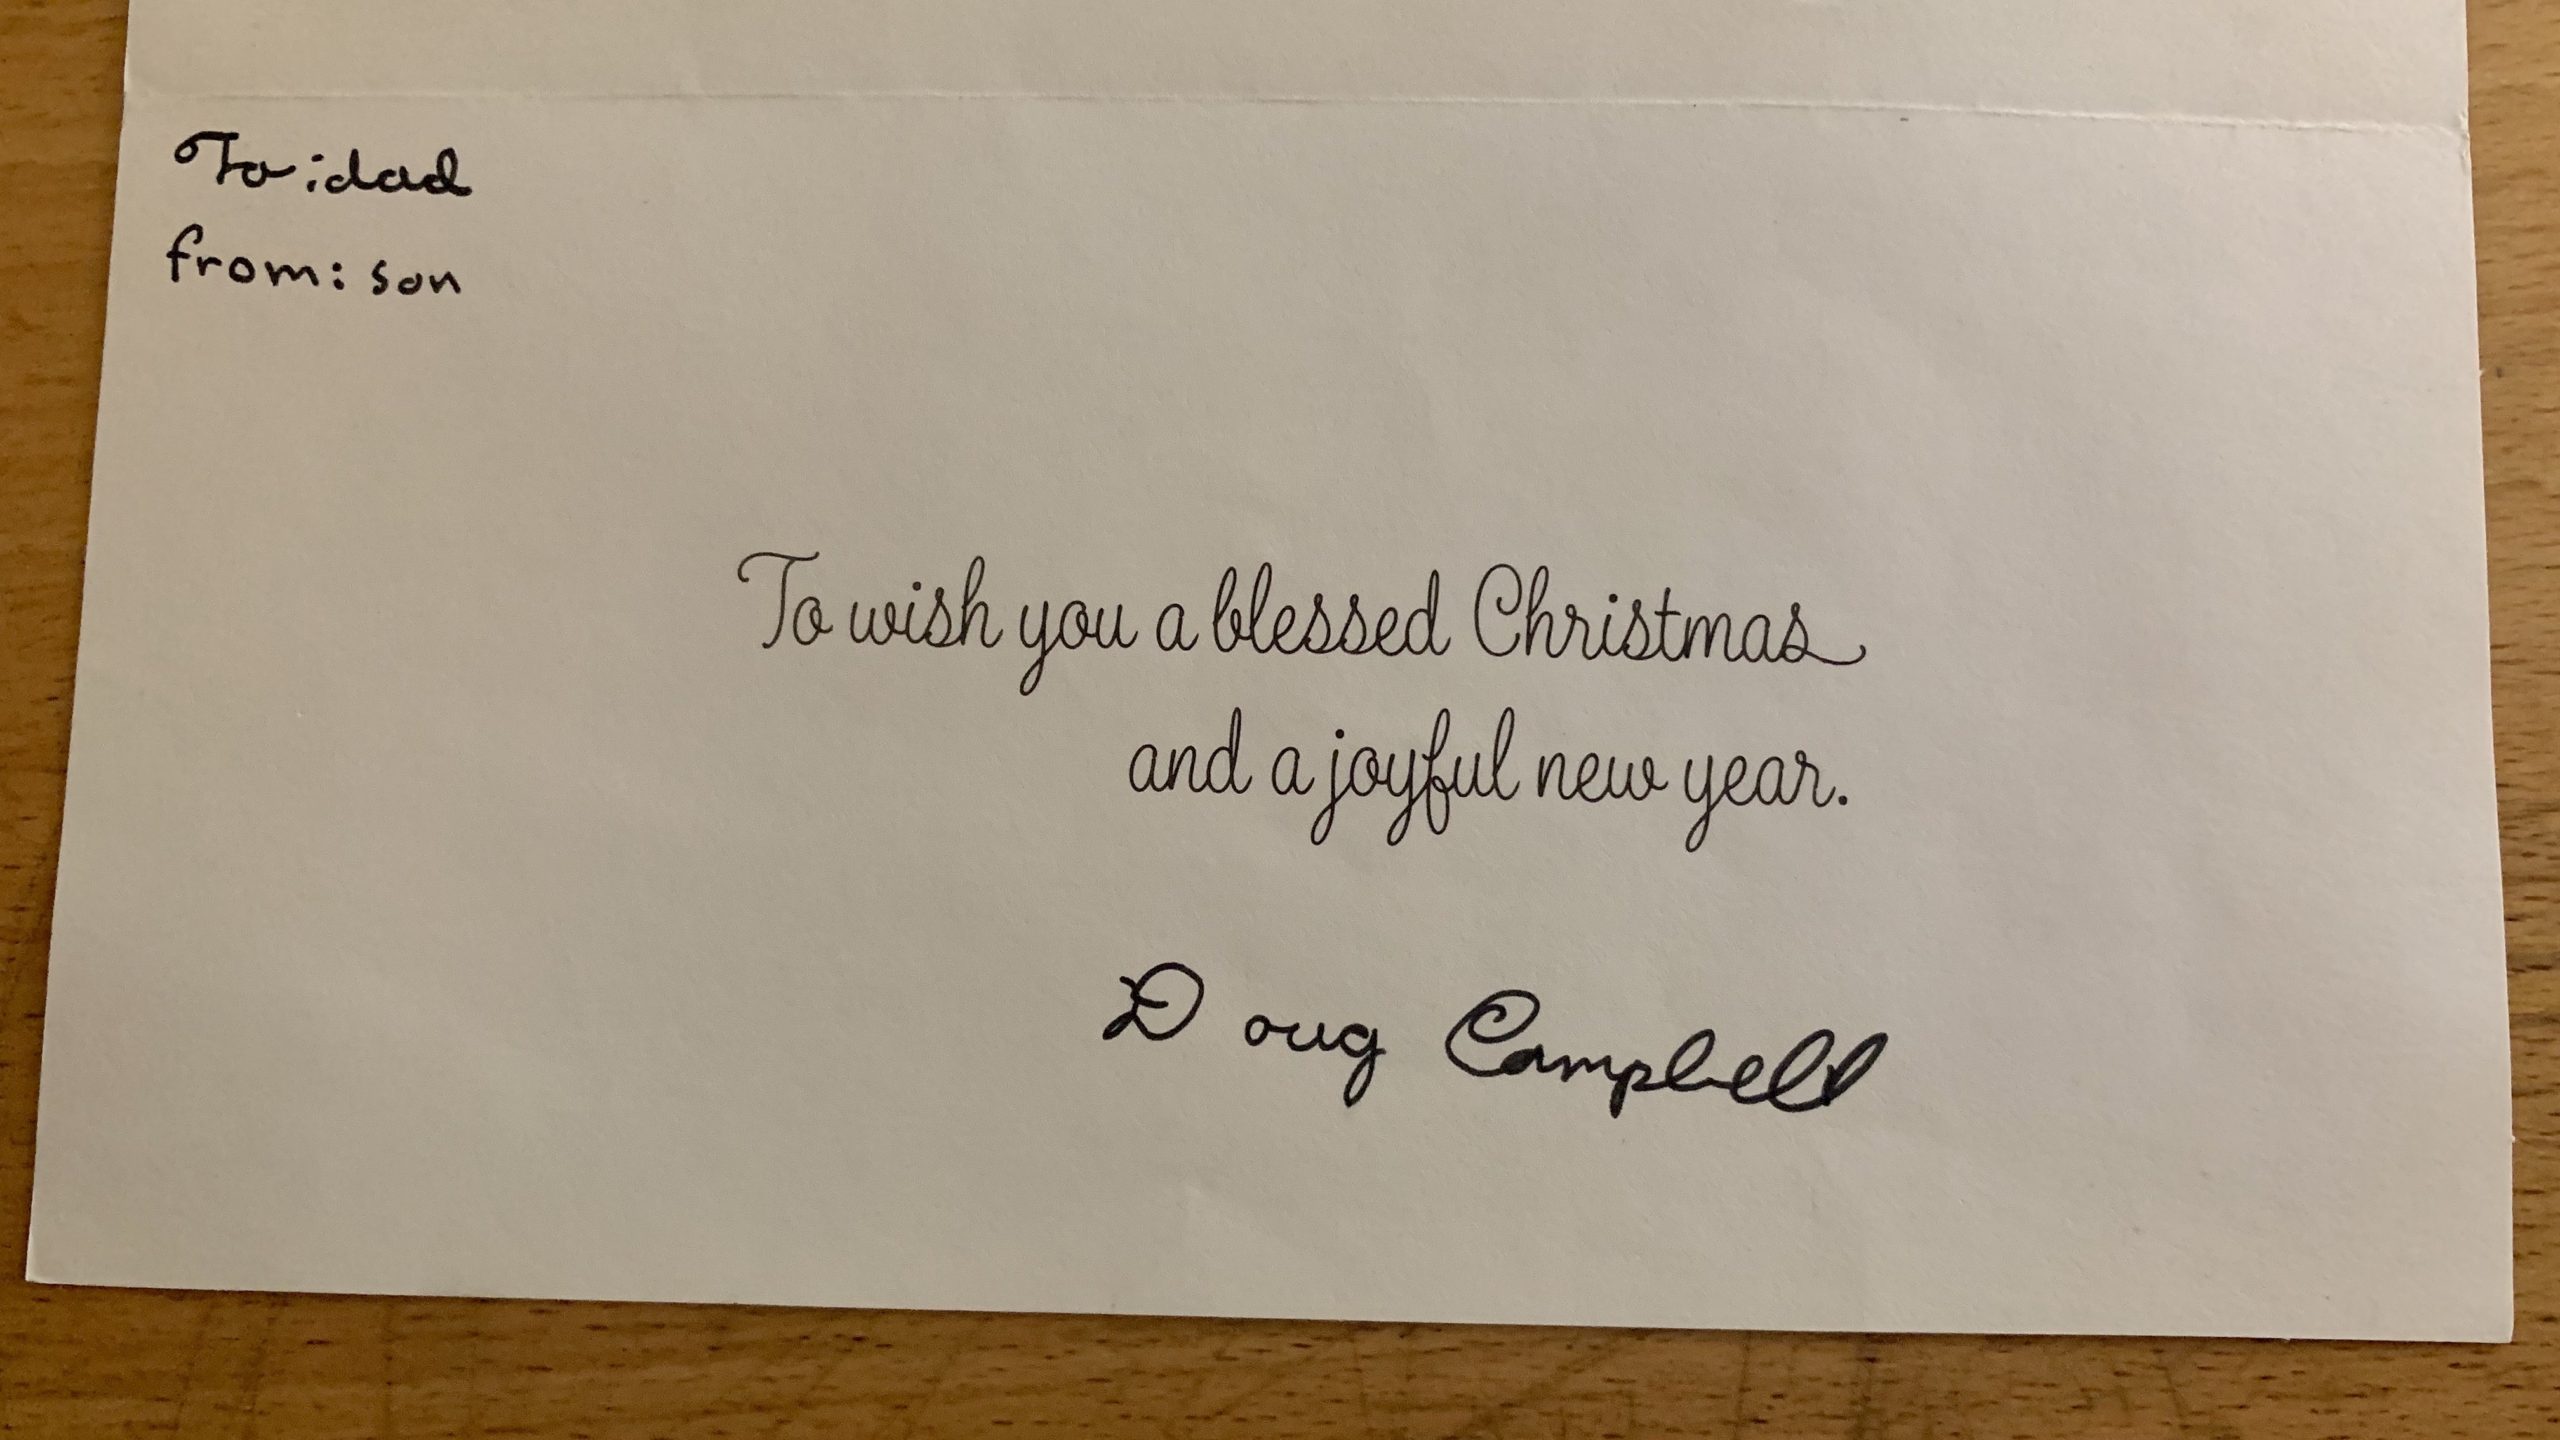 To: dad
from: son
To wish you a blessed Christmas
and a joyful new year.
Doug Campbell